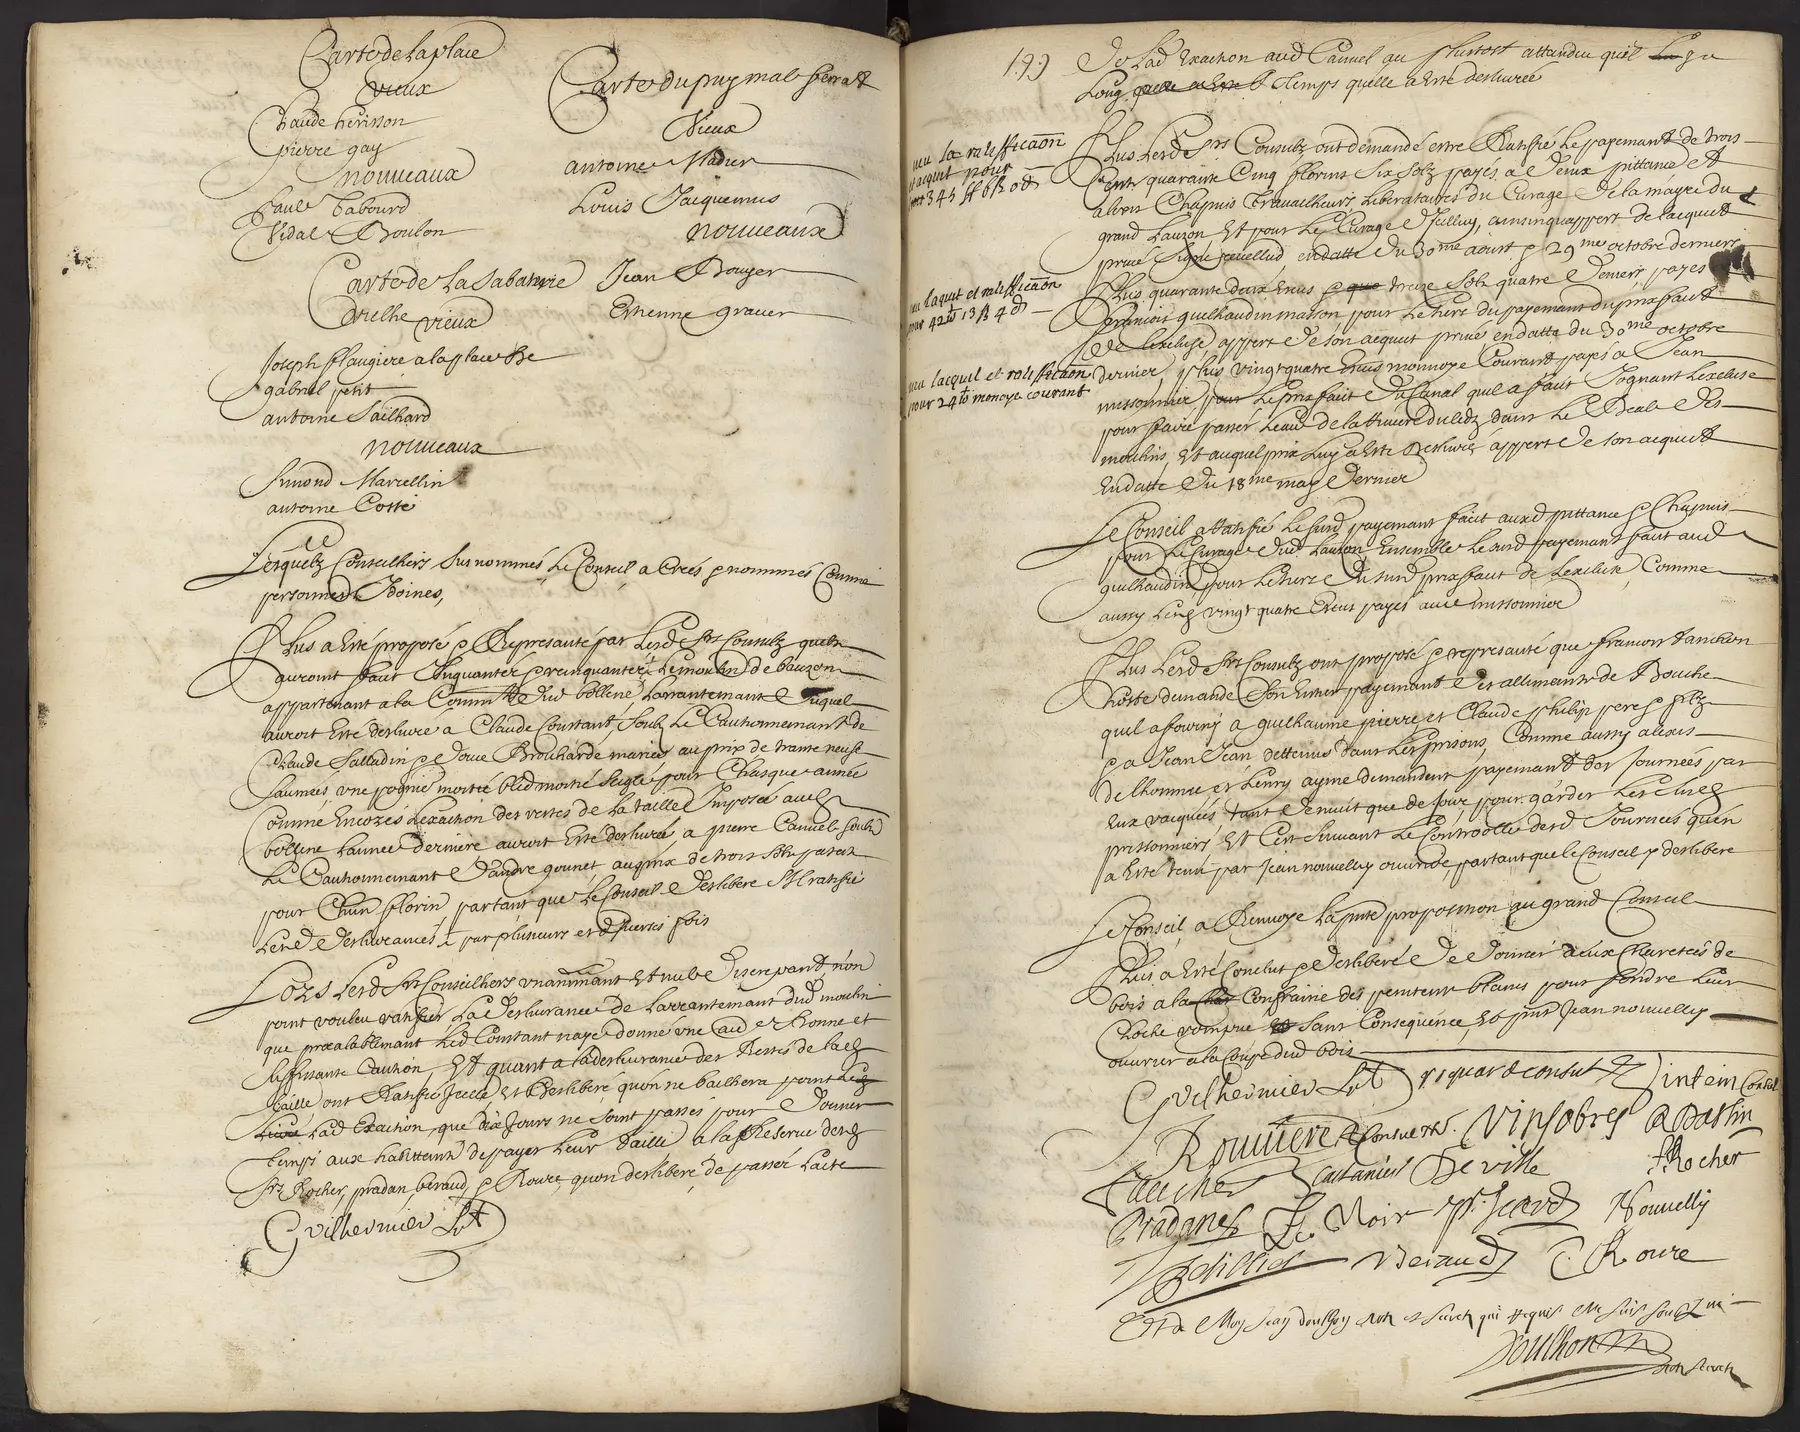 Carte de la place
vieux
Claude herisson
pierre gay
nouveaux
Paul Tabourd
Vidal Boulon
Carte de La Sabaterie
vielhe vieux
Joseph flaugiere a la place de
gabriel petit
antoine Sailhard
nouveaux
Simond Marcellin
antoine Coste
Carte du puy mal ferrat
Vieux
antoine Madier
Louis Jacquemus
nouveaux
Jean Bouyer
Estienne graver
Lesquelz Conseilhers Susnommés, Le Conseil a Creés & nommés Comme
personnes Idoines,
Plus a Esté proposé & Represanté par Lesd Srs Consulz quils
auront faict Inquanter & reinquanter Le moulin de bauzon
appartenant a la Commté dud bollene, Larrantemant duquel
auroit Esté deslivré a Claude Constant, Soubz Le Cautionnemant de
Claude Salladin & Doue Brocharde mariés au prix de trante neufs
Saumées, une pognie moitié bled moitié Seigle pour Chasque année
Comme Encores Lexaction des restes de la taille Imposée aud
bollene Lannée derniere auroit Esté deslivrée, a pierre Canuel soubz
Le Cautionnemant d'andre gounet, au prix de trois solz patatz
pour Chun florin, partant que Le Conseil Deslibere Sil ratifie
Lesd Deslivrances, par plusieurs et diverses fois
Lors Lesd Srs Conseilhers unanimmant Et nul Discrepant, n'on
point voulu ratifier La Deslivrance de Larrantemant dud moulin
que prealablemant Led Constant naye donné une aud Bonne et
suffisante Caution, Et quant a la deslivrance des Restes de lad
taille ont Ratifié Icelle, Et Deslibéré quon ne bailhera point
Lad Exaction, que dix Jours ne Soint passés pour Donner
temps aux habittants de payer Leur taille a la Reserve desd
Srs Rocher, pradan, beraud, & Roure, quon deslibere de passer Lacte
Guilhermier Lt
199
De Lad Exaction aud Canuel au plustost attandu quil
Long temps quelle a Esté deslivrée
veu la ratifficaon
et aquit pour
345 ff 6 ß 0 d
Plus Lesd Srs Consulz ont demandé estre Ratifié Le payemant de trois
Cents quarante Cinq florins Six Solz payés a Deux pittance Et
alexis Chapuis Travailheurs, Liberataires du Curage De la mayre du
grand Lauzon, Et pour Le Curage Dicelluy, ainsin quappert de lacquit
privé Signé rouellud en datte du 30me aoust & 29me octobre derniers
veu laquit et ratifficaon
pour 42 13 ß 4 d
Plus quarante deux Escus & treize Solz quatre Deniers payés a
francois guilhaudin masson pour Le tiers du payemant du prixfait
de Lescluse, appert de son acquit privé en datte du 30me octobre
veu lacquit et ratifficaon
pour 24 monoye courant
dernier, plus vingt quatre Escus monnoye Courant payés a Jean
missonnier, pour Le prix fait du Canal quil a fait Joignant Lescluse
pour faire passer Leau de la riviere du Letz dans Le Beal Des
moulins, Et auquel prix Luy a Esté Deslivré appert de son acquit
En datte du 18me may Dernier
Le Conseil a Ratifié Le susd payemant fait auxd pittance & Chapuis
pour Le Curage dud Lauzon Ensemble Le susd payemant faict aud
guilhaudin pour Le tiers du susd prix fait de Lescluse, Comme
aussy Lesd vingt quatre Escus payés aud missonnier
Plus Lesd Srs Consulz ont proposé & represanté que francois tanchon
hoste demande Son Entier payemant des allimants de Bouche
quil a fourny a guilhaume pierre et Claude philip pere & filz
& a Jean Jean dettenus dans Les prisons, Comme aussy alexis
de Lhomme et henry ayme demandent payemant des Journées par
Eux vacquées tant De nuit que de Jour pour garder Lesdits
prisonniers Et Ce Suivant Le Controolle desd Journées quen
a Esté tenu par Jean nouvelly ouvrier, partant que le Conseil y deslibere
Le Conseil, a Renvoyé La pnte proposition au grand Conseil
Plus a Esté Conclut & Deslibéré De Donner deux Charretées de
bois a la Confrairie des penitents blancs pour fondre Leur
Cloche rompue Sans Consequence, Et Jean nouvelly
ouvrier a la Coupe dud bois
Guilhermier Lt piquart consul Jintem Consul
Rouviere Consul VipSobres R Dastin
Faucher Castanier Deville F. Rocher
Pradanes Le Noir Icard Nouvelly
Beraud C Roure
Et de Moy Jean Doulhon Not et Secre qui Requis Me suis Soubzne
Doulhon
Not Secre